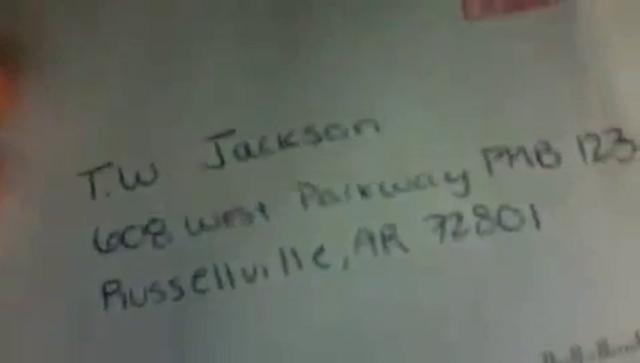 T.W Jackson
608 West Parkway PMB 123
Russellville, AR 72801